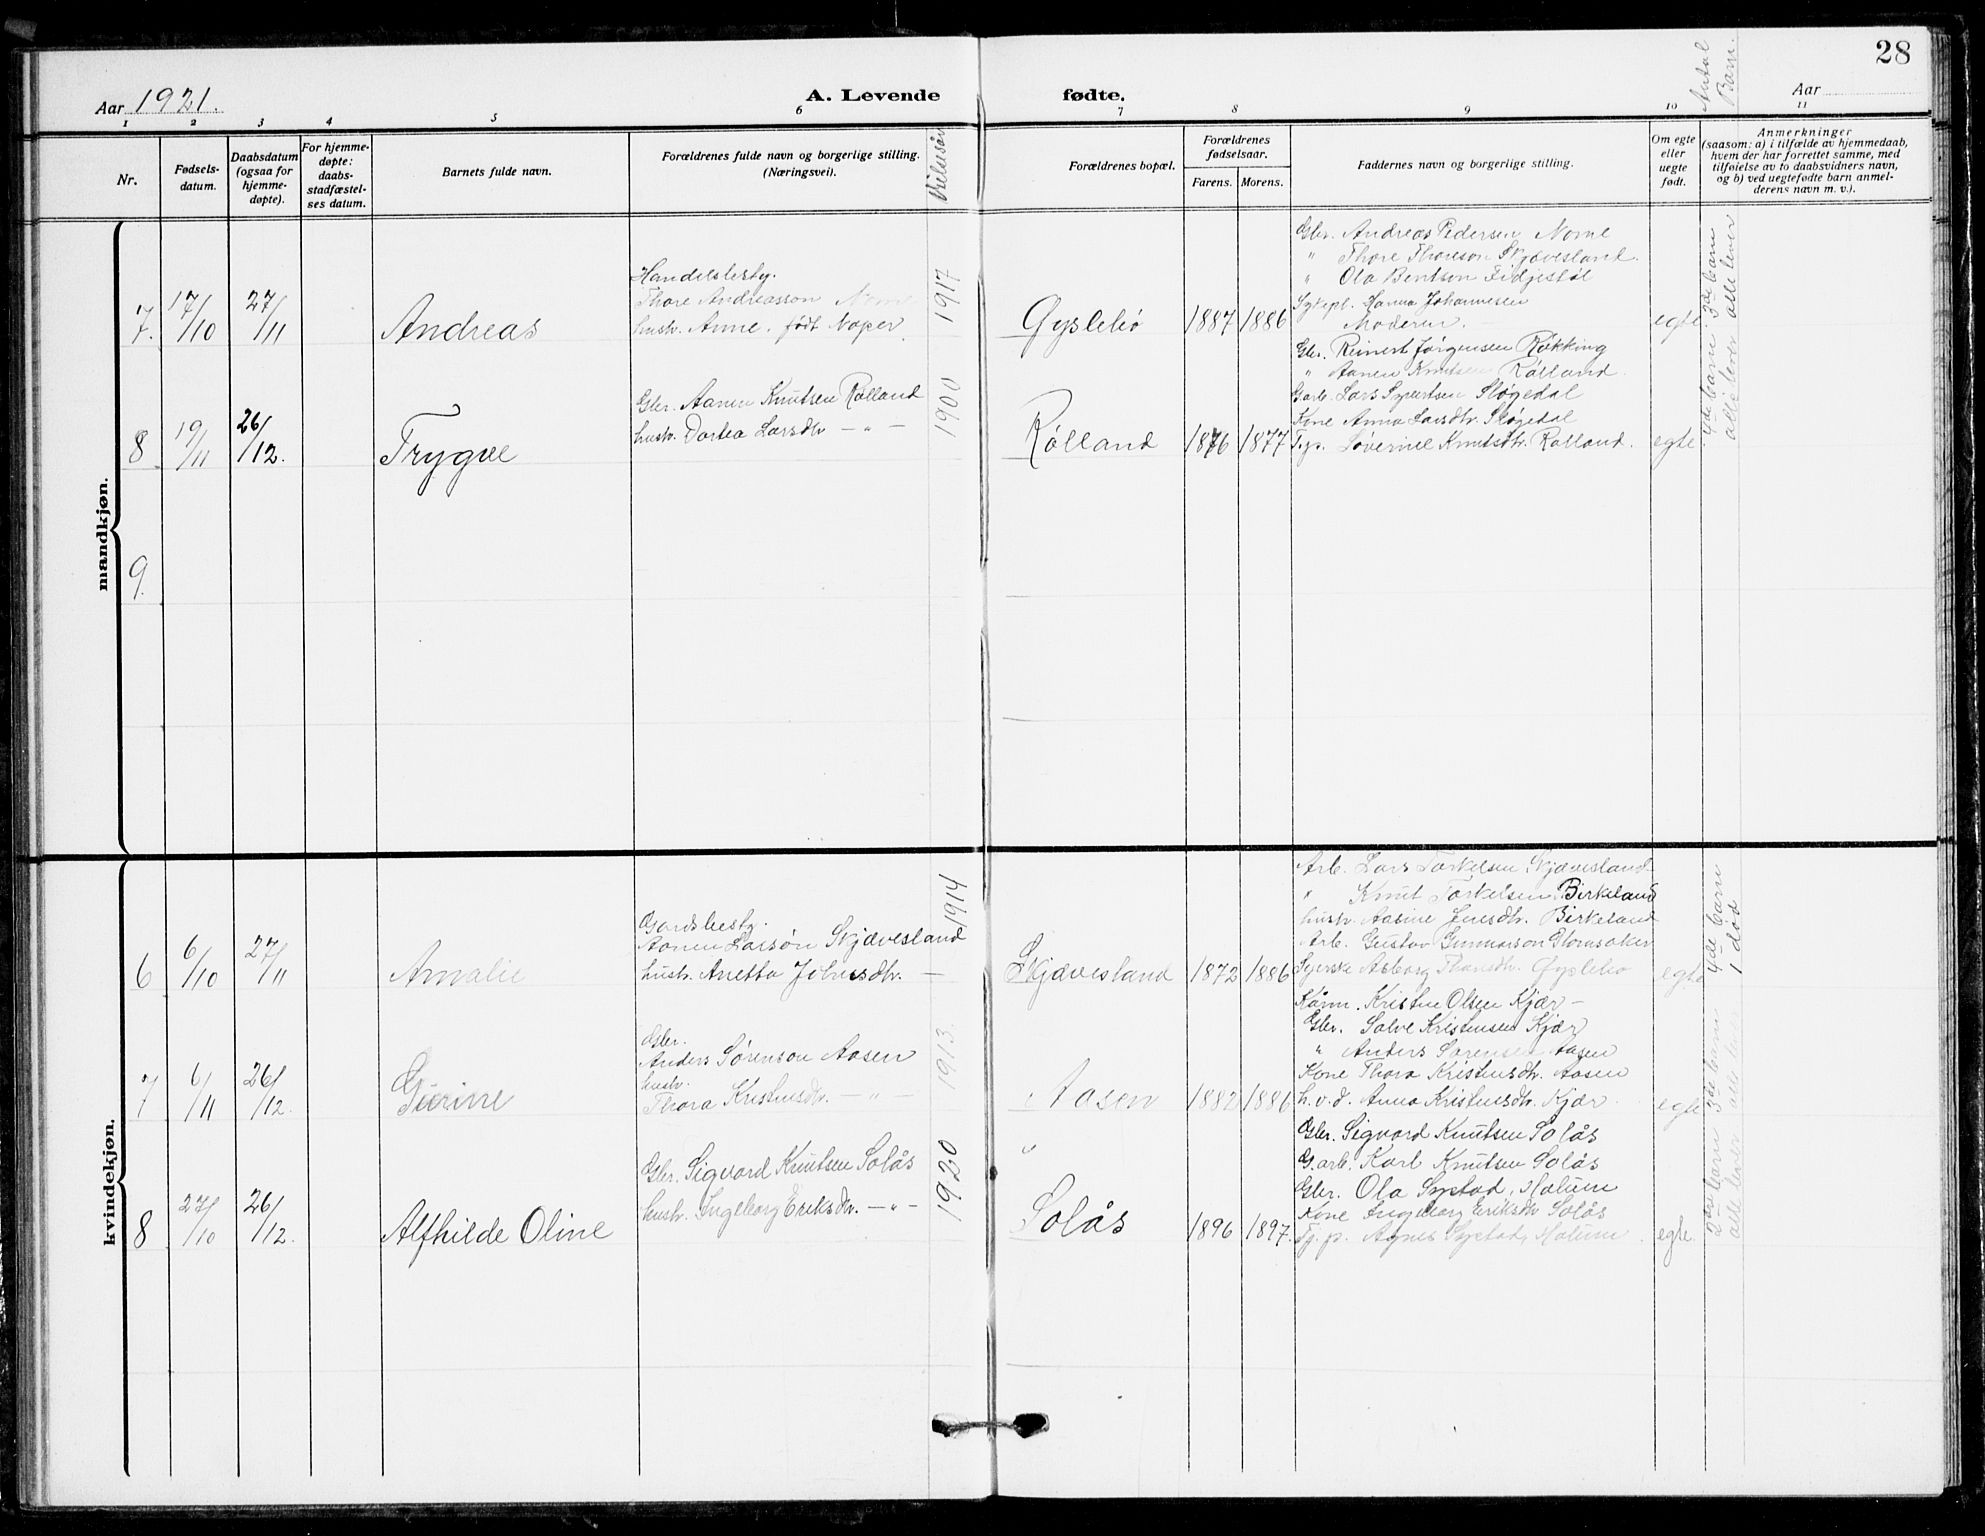 28
Aar 1921.
A. Levende fødte.
Antal Barn.
Aar
1 2 3 4 5 6 7 8 9 10 11
Nr.
Fødsels-
datum.
Daabsdatum
(ogsaa for
hjemme-
døpte).
For hjemme-
døpte:
daabs-
stadfæstel-
ses datum.
Barnets fulde navn.
Forældrenes fulde navn og borgerlige stilling.
(Næringsvei).
Vielsesår
Forældrenes bopæl.
Forældrenes
fødselsaar.
Farens. Morens.
Faddernes navn og borgerlige stilling.
Om egte
eller
uegte
født.
Anmerkninger
(saasom: a) i tilfælde av hjemmedaab,
hvem der har forrettet samme, med
tilføielse av to daabsvidners navn,
og b) ved uegtefødte barn anmel-
derens navn m. v.).
mandkjøn.
7. 17/10 27/11 Andreas
Handelsbesty.
Thore Andreasson Nome
hustr. Anne, født Noper
1917
Gyslebø 1887 1886
Gbr. Andreas Pedersen Nome
" Thore Thoreson Skjævesland.
" Ola Bentson Fidjestøl
Sykepl. Hanna Johannesen
Moderen.
egte
3de barn
alle lever
8 19/11 26/12. Trygve
Gbr. Aanen Knutsen Rølland
hustr. Dortea Larsdtr — " —
1900
Rølland 1876 1877
Gbr. Reinert Jørgensen Røkking
" Aanen Knutsen Rølland.
Garb. Lars Syvertsen Sløgedal
Kone Anna Larsdtr. Sløgedal
Knutsdtr. Rølland.
egte
4de barn
alle lever
9.
kvindekjøn.
6 6/10 27/11 Amalie
Gardsbesty.
Aanen Larsøn Skjævesland
hustr. Anetta Johnsdtr. —
1914
Skjævesland 1872 1886
Arb. Lars Torkelsen Skjævesland
" Knut Torkelsen Birkeland
hustr. Aasine Jensdtr. Birkeland
Arb. Gustav Gunnarson Glomsaker
Syerske Asborg Thorsdtr. Gyslebø
egte
4de barn
1 død
7 6/11 26/12. Gurine
Gbr.
Anders Sørenson Aasen
hustr.
Thora Kristensdtr. — " —
1913.
Aasen 1882 1886
Kårm. Kristen Olsen Kjær —
Gbr. Salve Kristensen Kjær
" Anders Sørensen Aasen
Kone Thora Kristensdtr. Aasen
h.v.d. Anna Kristensdtr. Kjær.
egte
3de barn
alle lever
8 27/10 26/12. Alfhilde Oline
Gbr. Sigvard Knutsen Solås
hustr. Ingeborg Eriksdtr. — " —
1920
"
Solås 1896 1897.
Gbr. Sigvard Knutsen Solås
G.arb. Karl Knutsen Solås
Gbr. Ola Systad, Holum
Kone Ingeborg Eriksdtr Solås
Tj. p. Agnes Systad, Holum.
egte.
barn
alle lever